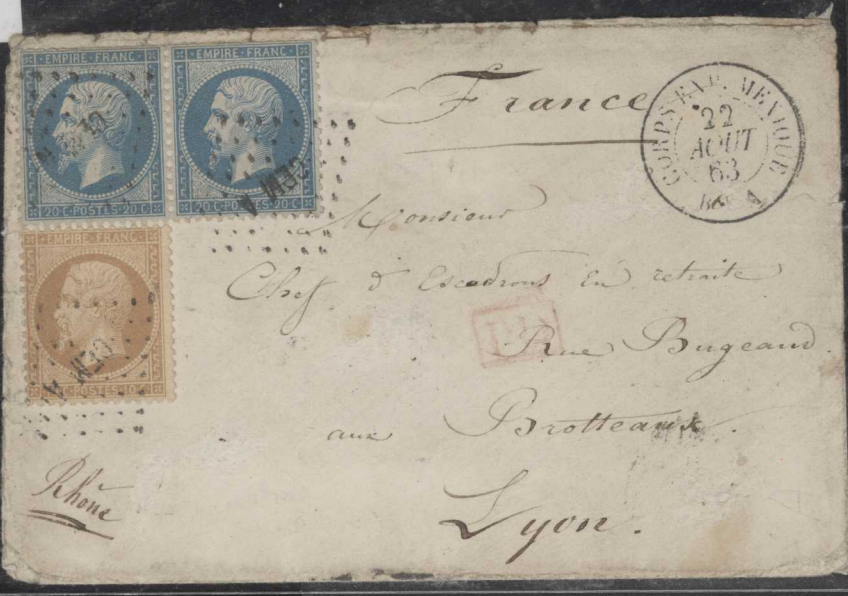 EMPIRE·FRANC·
20·C·POSTES·20·C·
EMPIRE·FRANC·
20·C·POSTES·20·C·
CEM A
EMPIRE·FRANC·
POSTES·10·C·
CEM A
France
CORPS EXP. MEXIQUE
22
AOUT
63
Bau A
Monsieur
Chef d'Escadrons En retraite
Rue Bugeaud
aux Brotteaux.
Lyon.
Rhône